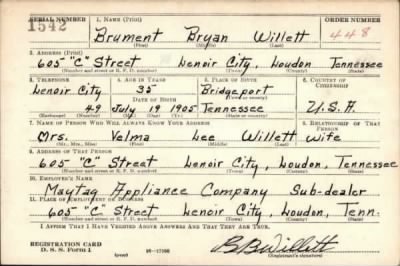 SERIAL NUMBER 1. NAME (Print) ORDER NUMBER
1542 Brument Bryan Willett 448
(First) (Middle) (Last)
2. ADDRESS (Print)
605 "C" Street Lenoir City, Loudon Tennessee
(Number and street or R. F. D. number) (Town) (County) (State)
3. TELEPHONE 4. AGE IN YEARS 5. PLACE OF BIRTH 6. COUNTRY OF CITIZENSHIP
Lenoir City 35 Bridgeport
DATE OF BIRTH
49 July 19 1905 Tennessee U.S.A.
(Exchange) (Number) (Mo.) (Day) (Yr.) (State or country)
7. NAME OF PERSON WHO WILL ALWAYS KNOW YOUR ADDRESS 8. RELATIONSHIP OF THAT PERSON
Mrs. Velma Lee Willett Wife
(Mr., Mrs., Miss) (First) (Middle) (Last)
9. ADDRESS OF THAT PERSON
605 "C" Street Lenoir City, Loudon, Tennessee
(Number and street or R. F. D. number) (Town) (County) (State)
10. EMPLOYER'S NAME
Maytag Appliance Company Sub-dealer
11. PLACE OF EMPLOYMENT OR BUSINESS
605 "C" Street Lenoir City, Loudon, Tenn.
(Number and street or R. F. D. number) (Town) (County) (State)
I AFFIRM THAT I HAVE VERIFIED ABOVE ANSWERS AND THAT THEY ARE TRUE.
REGISTRATION CARD
D. S. S. Form 1
B B Willett
(Registrant's signature)